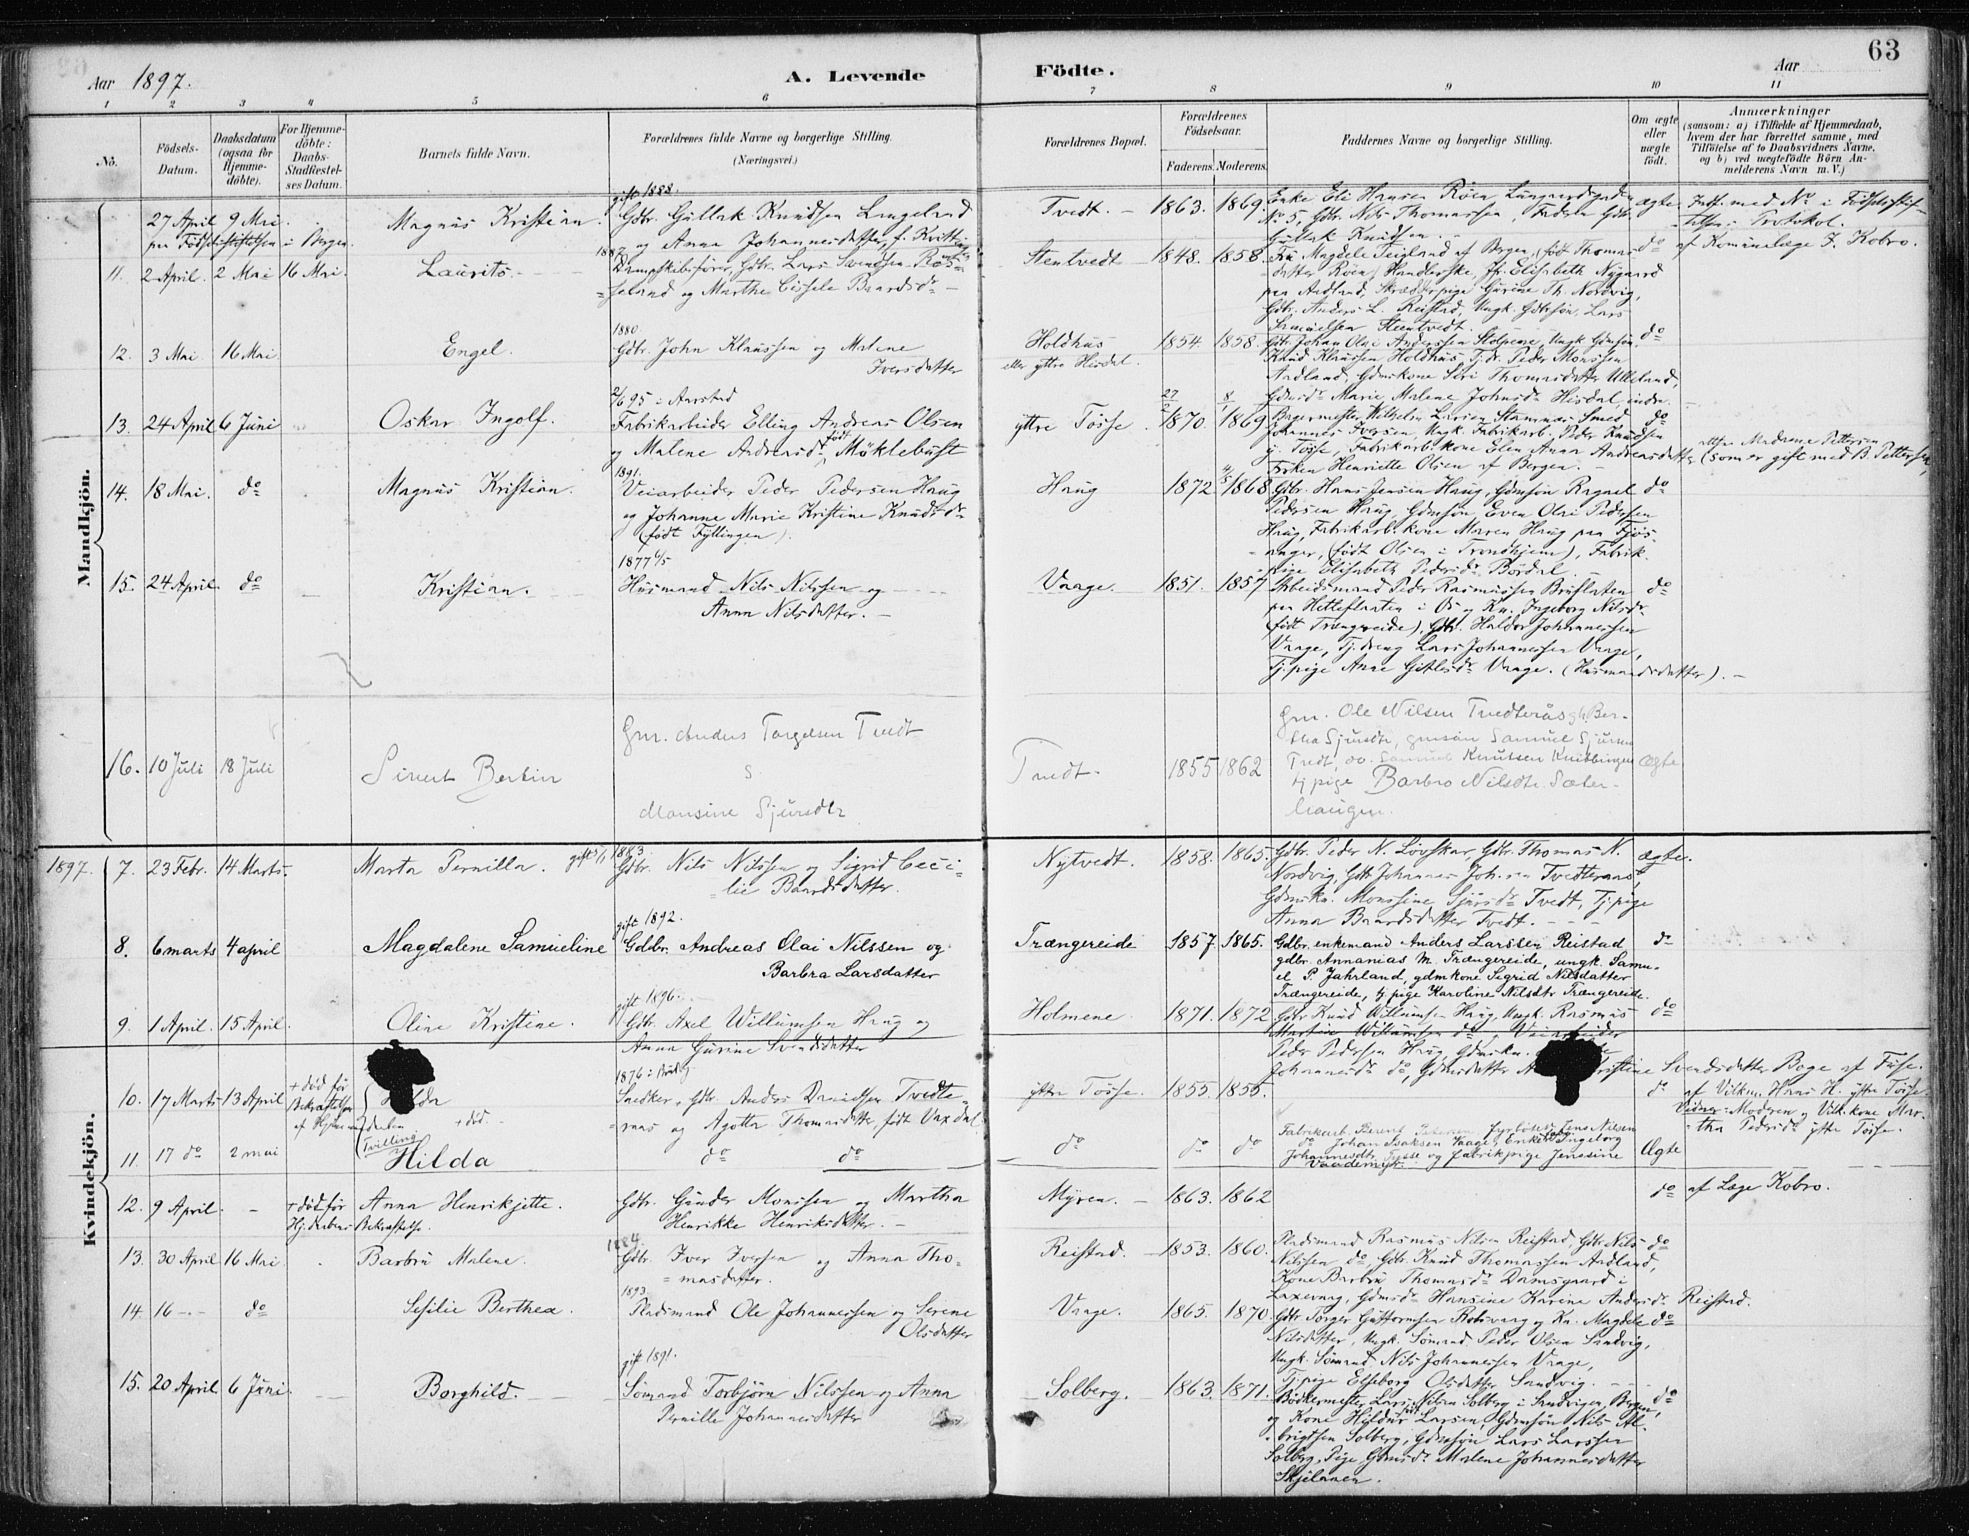 63
Aar 1897.
A. Levende Födte.
Aar
1 2 3 4 5 6 7 8 9 10 11
No.
Födsels-Datum.
Daabsdatum (ogsaa for Hjemme-döbte).
For Hjemme-döbte: Daabs-Stadfæstel-ses Datum.
Barnets fulde Navn.
Forældrenes fulde Navne og borgerlige Stilling.
(Næringsvei.)
Forældrenes Bopæl.
Forældrenes Födselsaar.
Faderens. Moderens.
Faddernes Navne og borgerlige Stilling.
Om ægte eller uægte födt.
Anmærkninger
(saasom: a) i Tilfælde af Hjemmedaab,
hvem der har forrettet samme, med
Tilföielse af to Daabsvidners Navne,
og b) ved uægtefödte Börn An-
melderens Navn m. V.)
Mandkjön.
gift 1888.
27 April 9 Mai Magnus Kristian. Gdbr. Gullak Knudsen Langeland
og Anna Johannesdatter, f.
Tvedt. 1863. 1869.
Enke Eli Hansen Röen
No 5, Gdbr. Nils Thomassen
Gullak Knudsen.
ægte
11. 2 April. 2 Mai 16 Mai. Laurits.
Dampskibsförer, Gdbr. Lars Svendsen
og Marthe Cissele Baardsdr
Stentvedt 1848. 1858.
Fru Magdele Teigland af Bergen, (föd Thomas-
datter Röen) Handlerske, Elisabeth Nygaard
paa Ardland, Skrædderpige Gurine Th. Nordvig,
Gdbr. Anders L. Reistad, Ungk. Gdbrsön. Lars
Samuelsen Stentvedt.
do
af Kommunelæge F. Kobro.
1880.
12. 3 Mai 16 Mai. Engel.
Gdbr. John Klaussen og Malene
Iversdatter
Holdhus
eller yttre Hisdal.
1854 1858.
Gdbr. Johan Olai Anderssen Stolpene, Ungk. Gdmsön
Knud Klaussen Holdhus, Tj.dr. Peder Monssen
Ardland, Gdmkone Siri Thomasdatter Ulleland,
Gdmdr. Marie Malene Johnsdr Hisdal indre.
do
2/6 95 i Aarstad
13. 24 April 6 Juni Oskar Ingolf.
Fabrikarbeider Elling Andreas Olsen
og Malene Andreasdr, födt Möklebust
yttre Tösse. 1870. 1869
Bagermester Wilhelm Larsen Stamnæs, Smed
Johannes Iversen, Ungk. Fabrikarb. Peder Knudsen
y. Tösse, Fabrikarb. kone Elen Anna Andreasdatter
Fröken Henriette Olsen af Bergen.
do
(som er gift med B. Pettersen
1891.
14. 18 Mai. do Magnus Kristian.
Veiarbeider Peder Pedersen Haug
og Johanne Marie Kristine Knudsdr
(födt Fyllingen).
Haug 1872 1868
Gdbr. Hans Jensen Haug, Gdmsön Ragnel
Pedersen Haug, Gdmsön, Even Olai Pedersen
Haug, Fabrikarb. kone Maren Haug paa Fjös-
anger, (födt Olsen i Trondhjem), Fabrik-
pige Elisabeth Pedersdr Bördal
do
1877 6/5
15. 24 April do Kristian.
Husmand Nils Nilssen og
Anna Nilsdatter.
Vaage. 1851. 1857
Arbeidsmand Peder Rasmussen Bruflaten
paa Hetleflaaten i Os og Kn. Ingeborg Nilsdr
(födt Trængereide), Gdbr. Haldor Johannessen
Vaage, Tj.dreng Lars Johannessen Vaage,
Tj.pige Anne Gitlesdr Vaage. (Husmandsdatter).
do
16. 10 Juli 18 Juli Sivert Bertin
Gmr. Anders Torgelsen Tvedt
Monsine Sjursdtr
Tvedt. 1855 1862
Gmr. Ole Nilsen Tvedteraas, Ber-
tha Sjursdtr, gmsön Samuel Sjursen
Tvedt, Samuel Knutsen
tj pige Barbro Nilsdtr. Sæter-
haugen.
ægte
Kvindekjön.
1897. 7. 23 Febr. 14 Marts. Marta Pernilla.
1883
Gdbr. Nils Nilssen og Sigrid Ceci-
lie Baardsdatter.
Nytvedt. 1858. 1865.
Gdbr. Peder N. Lövskar, Gdbr. Thomas N.
Nordvig, Gdbr Johannes Joh.sen Tvedteraas,
Gdmkn. Monssine Sjursdr Tvedt, Tj.pige
Anna Baardsdatter Tvedt.
ægte.
gift 1892.
8. 6 marts 4 april Magdalene Samueline
Gdbr. Andreas Olai Nilssen og
Barbra Larsdatter
Trængereide 1857. 1865.
Gdbr. enkemand Anders Larssen Reistad
gdbr. Annanias M. Trængereide, ungk. Samu-
el P. Jahrland, gdmkone Sigrid Nilsdatter
Trængereide, tj.pige Karoline Nilsdtr Trængereide.
do
gift 1896.
9. 1 April. 15 April. Oline Kristine.
Gdbr. Axel Willumsen Haug og
Anna Gurine Svendsdatter
Holmene 1871. 1872
Gdbr Knud Willumsen Haug, Ungk. Rasmus
Martin Willumsen do, Veiarbeider
Peder Pedersen Haug, Gdmkn.
Johannesdr do, Gdmdatter Kristine Svendsdatter Boge af Fuse.
do
10. 17 Marts 13 April + död för Bekræftelse af Hjemme-daaben Tvilling + död.
1876
Snedker, Gdbr. Anders Danielsen Tvedte-
raas og Agotta Thomasdatter, födt Vaxdal
yttre Tösse. 1855. 1855.
do
af Vilkm. Hans H. yttre Tösse.
Vidner: Moderen og Vilk.kone Mar-
tha Pedersdr yttre Tösse.
11. 17 do 2 mai Hilda do do
do do do
Fabrikarb. Bernt Jens Nilsen
do Johan Isaksen Vaage, Enke Ingeborg
Johannesdtr. Tysse og fabrikpige Jensine
Vaademyr.
Ægte
12. 9 April. + död för Hj.daabens Bekræftelse. Anna Henrikjette.
Gdbr. Gunder Monssen og Martha
Henrikke Henriksdatter.
Myren. 1863. 1862
do af Læge Kobro.
1884.
13. 30 April 16 Mai Barbru Malene.
Gdbr. Iver Iversen og Anna Tho-
masdatter.
Reistad. 1853. 1860.
Pladsmand Rasmus Nilsen Reistad, Gdbr Nils
Nilssen do, Gdbr Knud Thomassen Ardland,
Kone Barbru Thomasdr Damsgaard i
Laxevaag, Gdmdr Hansine Karine Andersdr Reistad.
do
1893.
14. 16 do Sesilie Berthea.
Pladsmand Ole Johannessen og Serine
Olsdatter
Vaage. 1865. 1870
Gdbr Torger Guttormsen Rolsvaag og Kn. Magdele
Nilsdatter, Ungk. Sömand Peder Olsen Sandvig,
Ungk. Sömand Nils Johannessen Vaage,
Tj.pige Elseborg Olsdatter Sandvig.
do
gift 1891.
15. 20 April 6 Juni Borghild.
Sömand Torbjörn Nilssen og Anna
Pernille Johannesdatter
Solberg. 1863. 1871.
Bödkermester Lars Nilsen Solberg i Sandvigen, Bergen,
og Kone Hildur Larsen, Gdmsön Nils Al-
brigtsen Solberg, Gdmsön Lars Larssen
Solberg, Pige Gdmdr Malene Johannesdatter
Skjelanen.
do